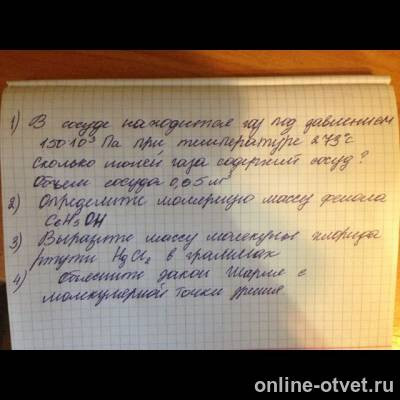 1) В сосуде находится газ под давлением
150·10³ Па при температуре 273°С
Сколько молей газа содержит сосуд?
Объем сосуда 0,05 м³
2) Определите молярную массу фенола
C₆H₅OH
3) Выразите массу молекулы хлорида
ртути HgCl₂ в граммах
4) объясните закон Шарля с
молекулярной точки зрения
online-otvet.ru